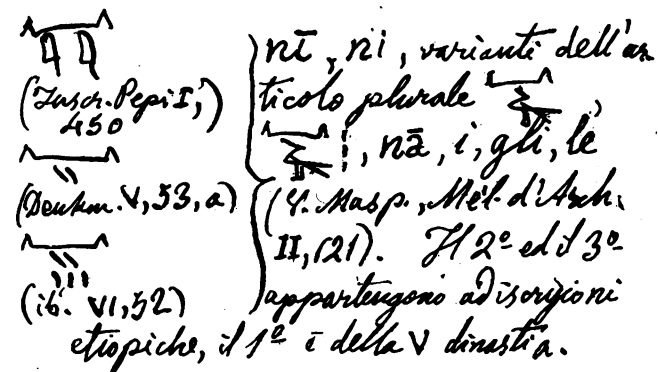 (Inscr. Pepi I,
450)
(Denkm. V, 53, a)
(ib. VI, 52)
nī, ni, varianti dell'ar
ticolo plurale
, nā, i, gli, le
(V. Masp., Mél. d'Arch.
II, 121). Il 2º ed il 3º
appartengono ad iscrizioni
etiopiche, il 1º è della V dinastia.